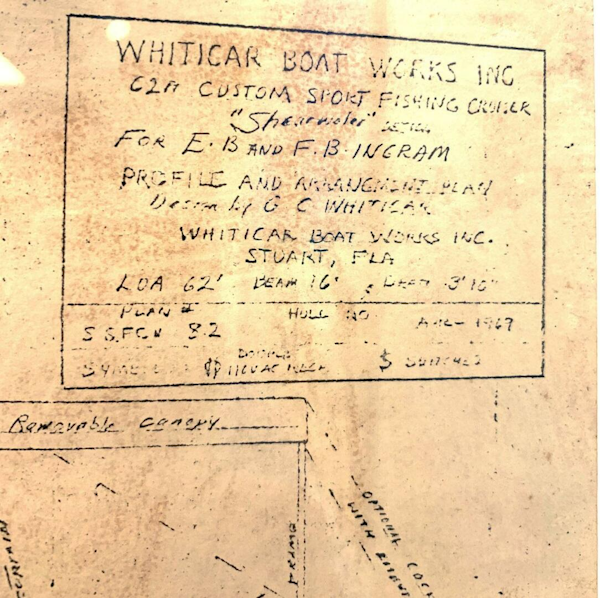 WHITICAR BOAT WORKS INC
62 FT CUSTOM SPORT FISHING CRUISER
"Shearwater" DESIGN
FOR E.B AND F.B. INGRAM
PROFILE AND ARRANGMENT PLAN
Design by G C WHITICAR
WHITICAR BOAT WORKS INC.
STUART, FLA
LOA 62' BEAM 16' DRAFT 3'10"
PLAN # HULL NO
S.S.FCN 8.2 1967
$ SWITCHES
Removable canopy
CURTAIN
FRAME
OPTIONAL
WITH